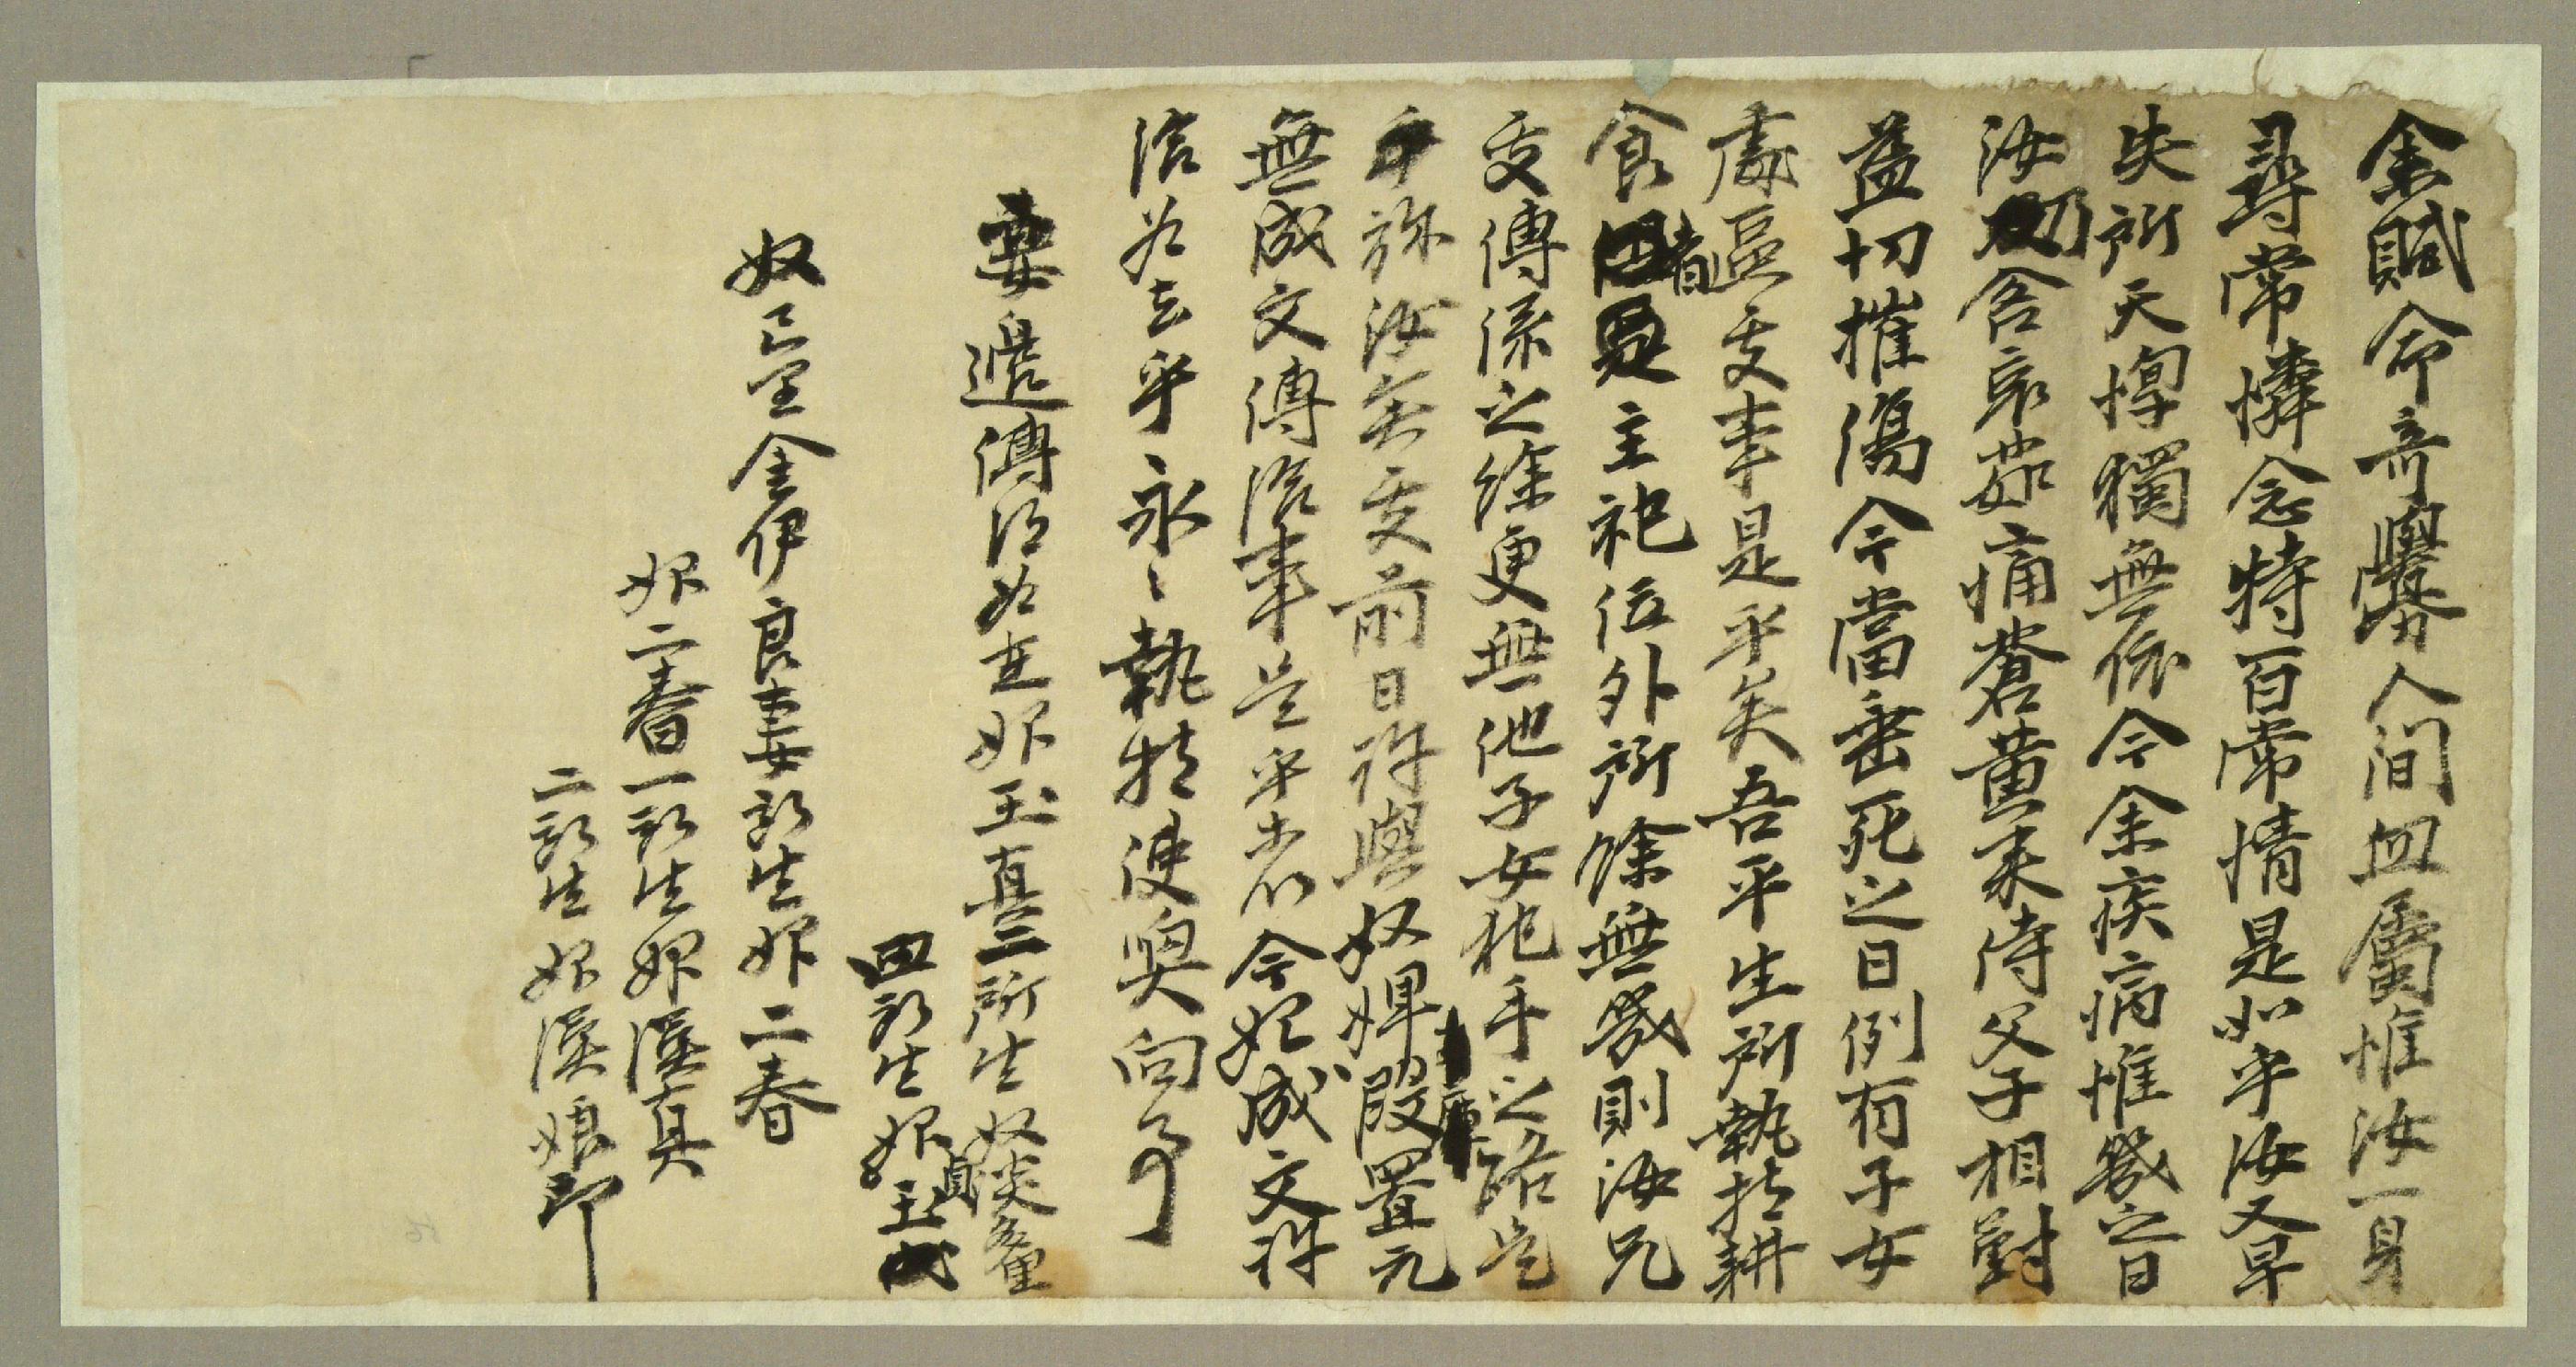 余賦命奇釁人間血屬惟汝一身
尋常憐念特百常情是如乎汝又早
失所天惸獨無依今余疾病惟幾之日
汝乃含哀茹痛蒼黃來侍父子相對
益切摧傷今當垂死之日例有子女
處區處事是乎矣吾平生所執持耕
食者是主祀位外所餘無幾則汝兄
處傳係之餘更無他子女犯手之路是
乎旀汝矣處前日許與奴婢段置元
無成文傳給事是乎等以今始成文許
給為去乎永〻執持使奐向事
妻邊傳得為在婢玉真二所生奴
四所生婢玉
奴 金伊良妻所生婢二春
婢二春一所生婢漢真
二所生婢漢娘印